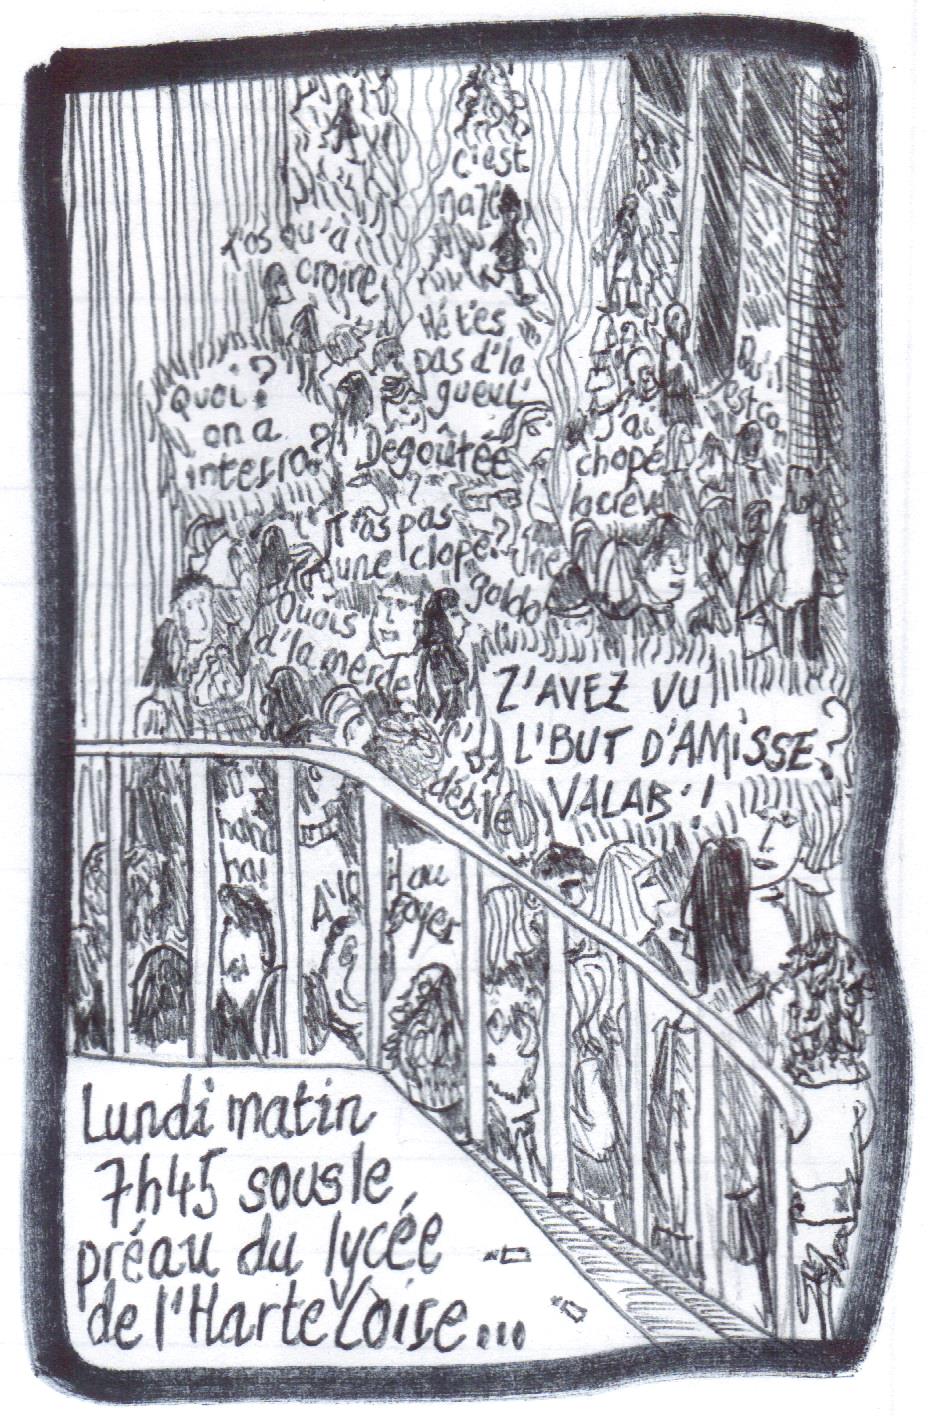 c'est
naze
T'as qu'à
croire
Hé t'es
pas d'la
gueul'
Quoi?
on a
interro?
Dégoûtée
J'ai
chopé
la crèv'
Qu'il
est con
T'as pas
une clope?
Une
goldo
Ouais
d'la merde
Z'AVEZ VU
L'BUT D'AMiSSE
VALAB'!?
C'est
débile
haha
ha!
Lundi matin
7h45 sous le
préau du lycée
de l'Harteloire...